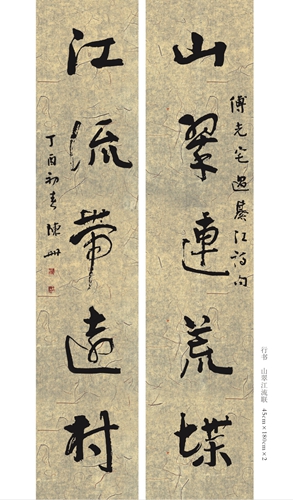 傅光宅過綦江詩句
山翠連荒堞
江流帶遠村
丁酉初春陳
行书 山翠江流联 45cm×180cm×2